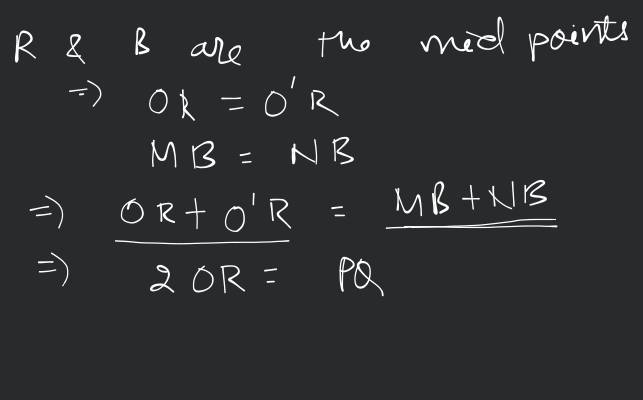 R & B are the mid points
=> OR = O'R
MB = NB
=> OR + O'R = MB + NB
=> 2 OR = PQ